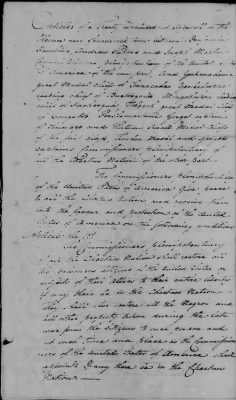 Articles of a Treaty concluded at Hopewell on the
Keowee near Seneca Old Town between Benjamin
Hawkins, Andrew Pickens and Joseph Martin
Commissioners Plenipotentiary of the United States
of America of the one part, and
great Medal Chief of
leading chief of
chief of
great Medal Chiefs
of the first
Captains Commissioners Plenipotentiary of
all the Choctaw Nation of the other part.
The Commissioners Plenipotentiary
of the United States of America Give peace
to all the Choctaw Nation and receive them
into the favour and protection of the United
States of America on the following conditions
Article the 1st
The Commissioners Plenipotentiary
of all the Choctaw Nation Shall restore all
the prisoners citizens of the United States or
subjects of their Allies to their entire liberty
if any there be in the Choctaw Nation
they Shall also restore all the Negroes and
all other property taken during the late
war from the citizens to such person and
at such time and place as the Commissioners
of the United States of America Shall
appoint if any there be in the Choctaw
Nation